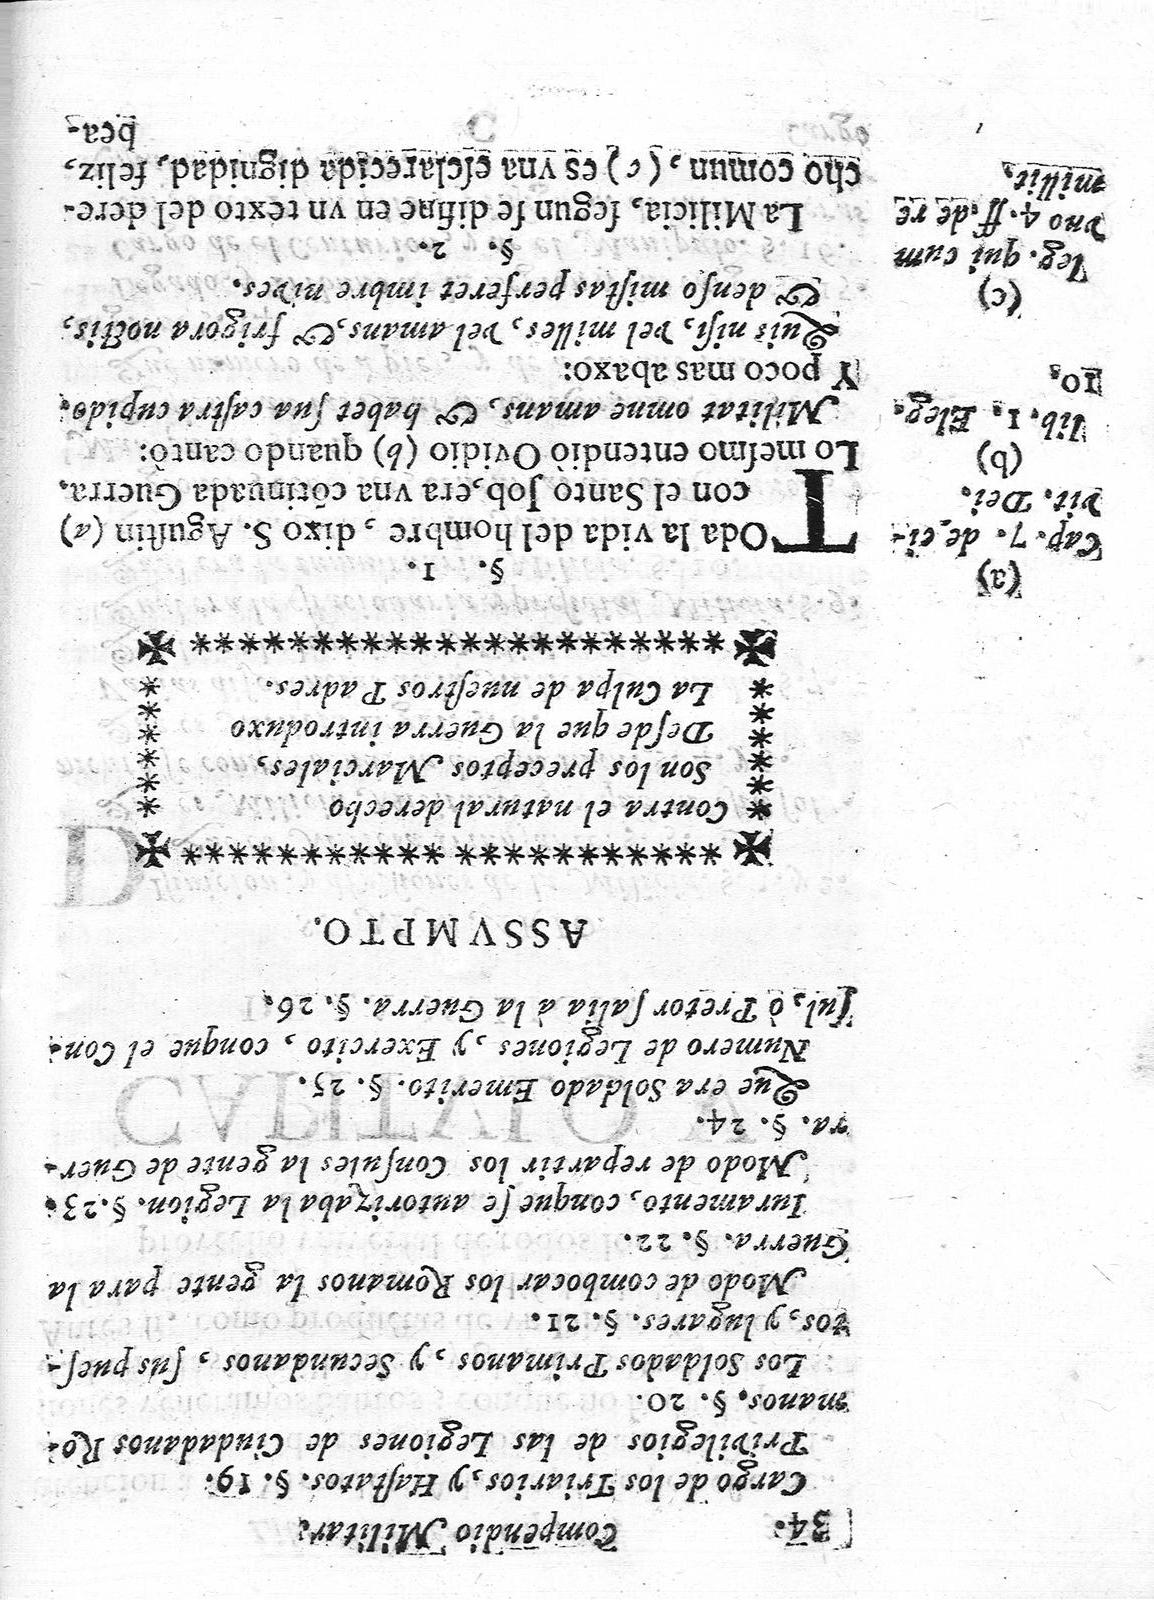 34. Compendio Militar.
Cargo de los Triarios, y Hastatos. §. 19.
Privilegios de las Legiones de Ciudadanos Ro-
manos. §. 20.
Los Soldados Primanos, y Secundanos, sus pueſ-
tos, y lugares. §. 21.
Modo de combocar los Romanos la gente para la
Guerra. §. 22.
Iuramento, conque ſe autorizaba la Legion. §. 23.
Modo de repartir los Conſules la gente de Guer-
ra. §. 24.
Que era Soldado Emerito. §. 25.
Numero de Legiones, y Exercito, conque el Con-
ſul, ò Pretor ſalia à la Guerra. §. 26.
ASSVMPTO.
Contra el natural derecho
Son los preceptos Marciales,
Deſde que la Guerra introduxo
La Culpa de nueſtros Padres.
§. 1.
TOda la vida del hombre, dixo S. Aguſtin (a)
con el Santo Job, era vna cõtinuada Guerra.
Lo meſmo entendiò Ovidio (b) quando cantò:
Militat omne amans, & habet ſua caſtra cupido.
Y poco mas abaxo:
Quis niſi, vel milles, vel amans, & frigora noctis,
& denſo miſtas perferet imbre nives.
§. 2.
La Milicia, ſegun ſe difine en vn texto del dere-
cho comun, (c) es vna eſclarecida dignidad, feliz,
bea-
(a)
Cap. 7. de ci-
vit. Dei.
(b)
lib. 1. Eleg.
10.
(c)
leg. qui cum
vno 4. ff. de re
milit.